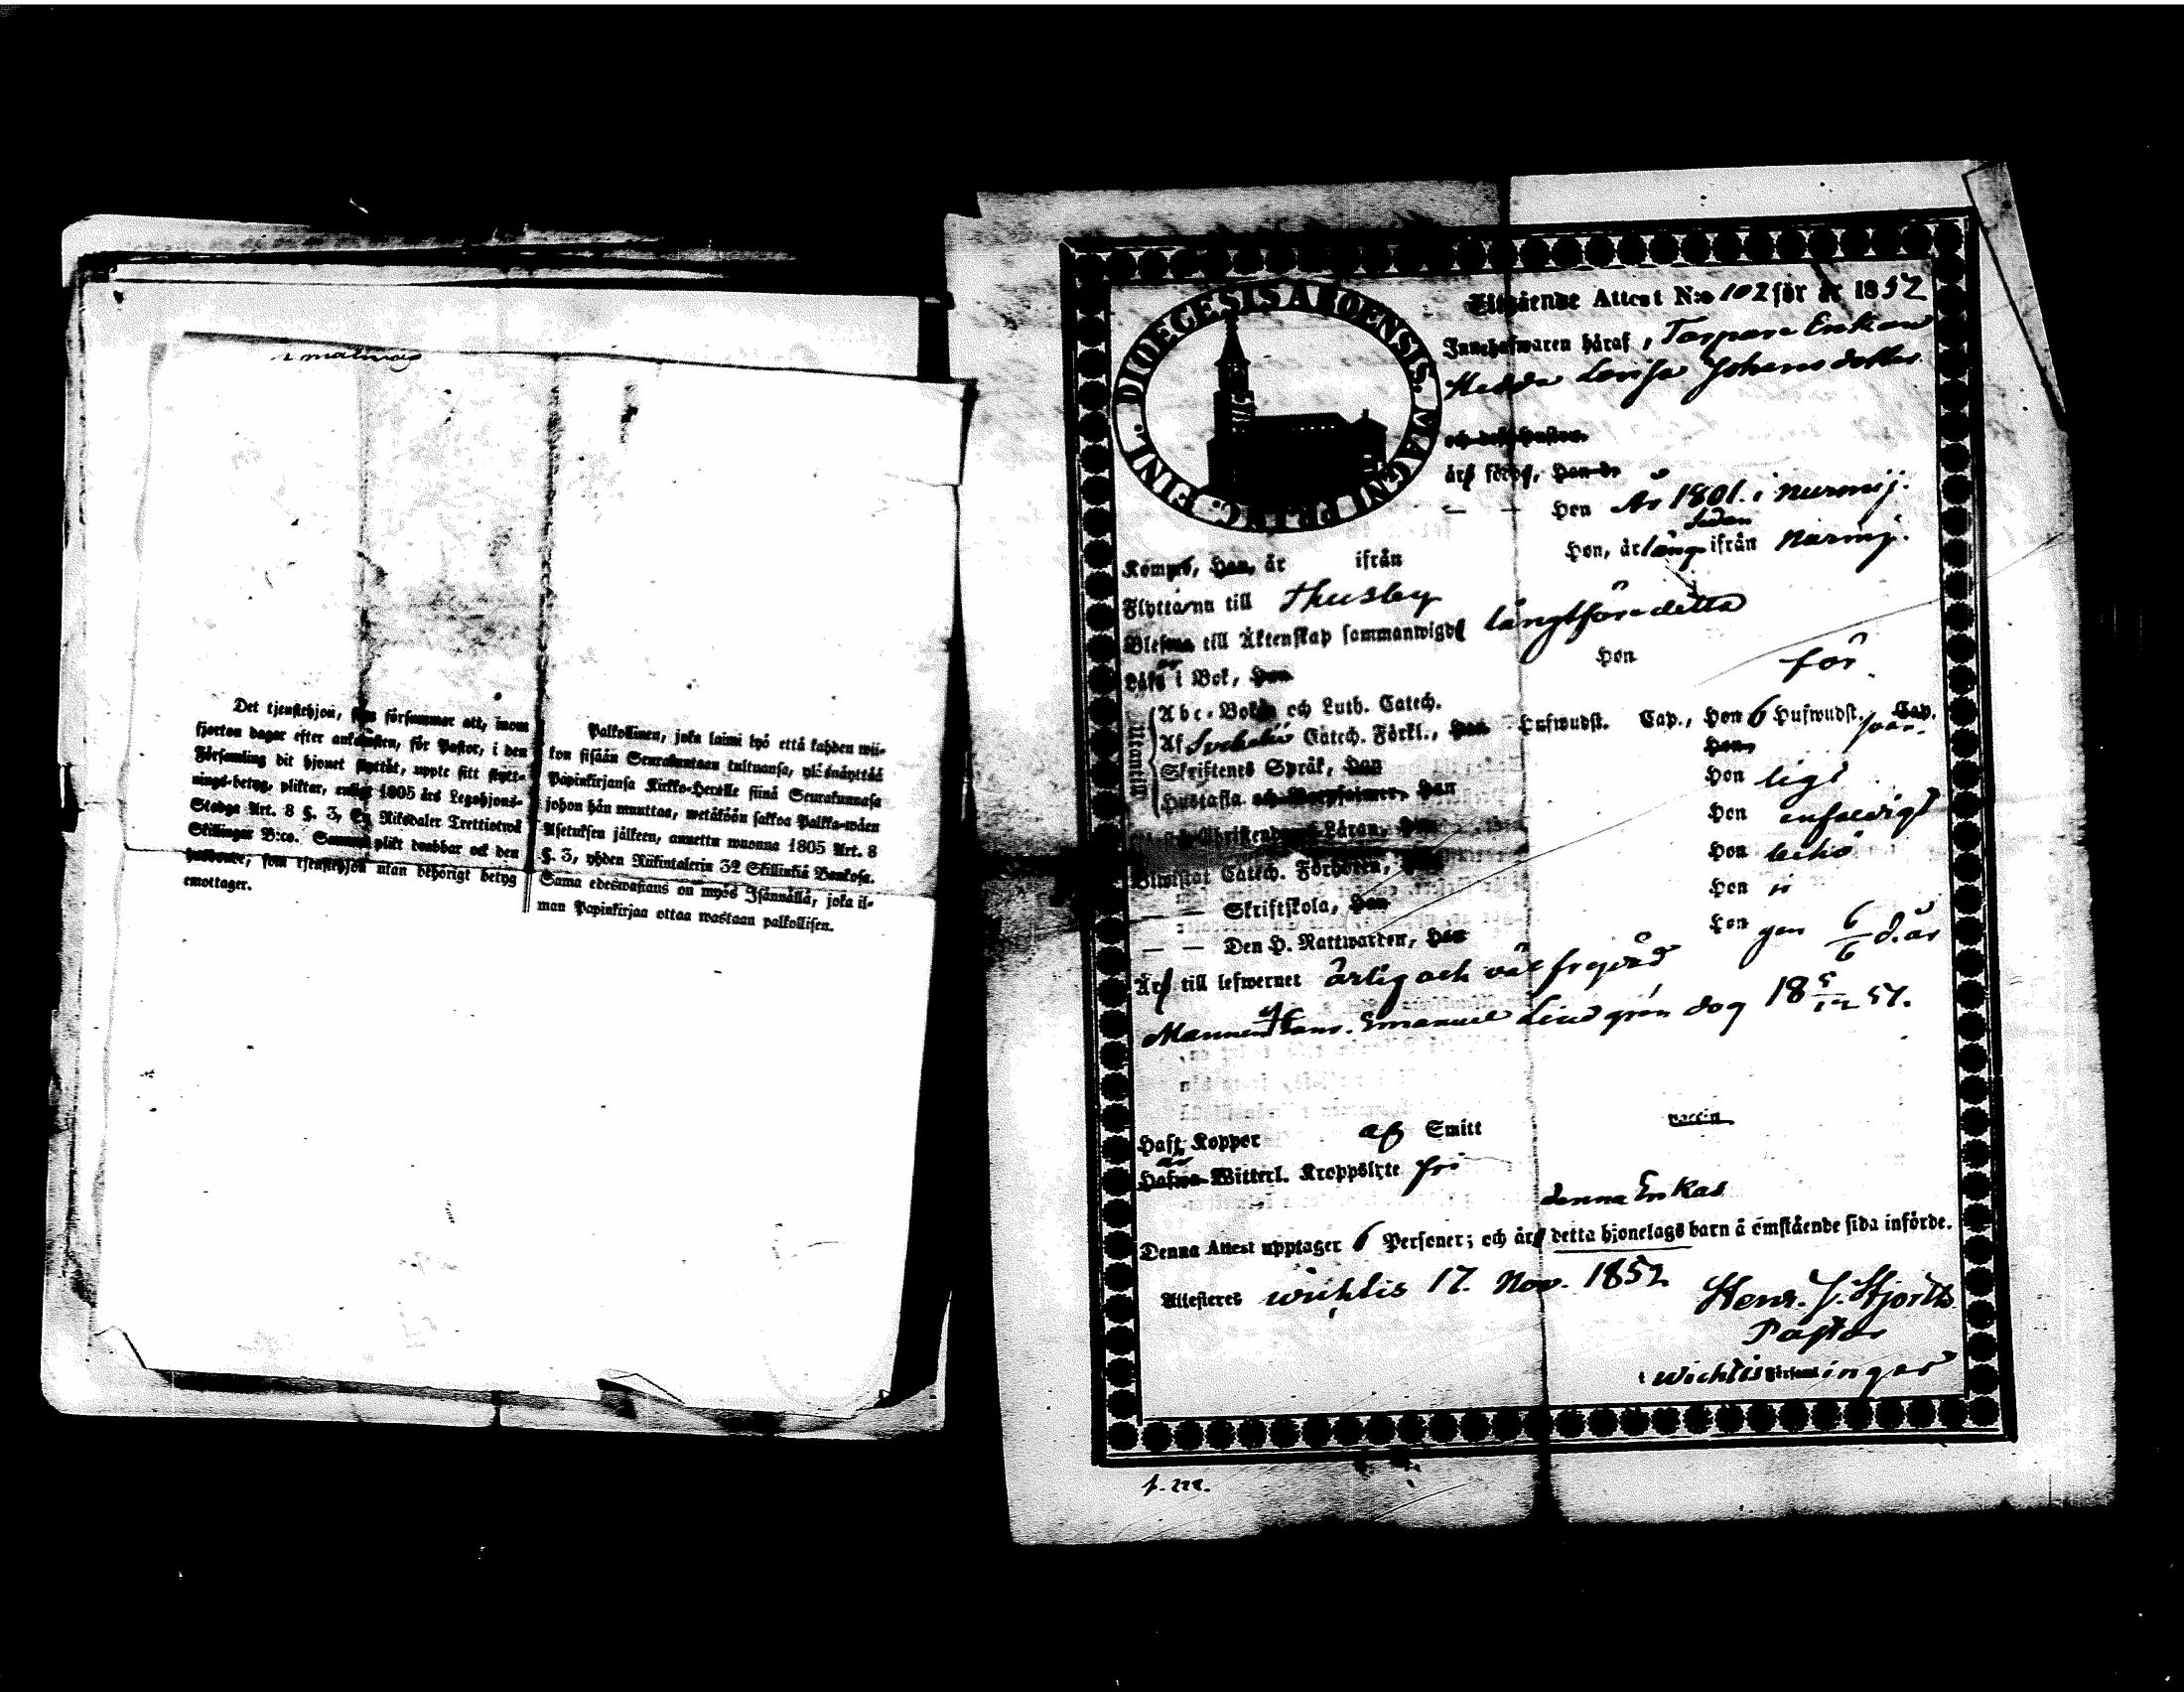 Det tjenstehjon, som försummar att, inom
fjorton dagar efter ankomsten, för Pastor, i den
Församling dit hjonet flyttat, uppte sitt flytt-
nings-betyg, pliktar, enligt 1805 års Legohjons-
Stadga Art. 8 §. 3, En Riksdaler Trettiotwå
Skillingar B:co. Samma plikt drabbar ock den
husbonde, som tjenstehjon utan behörigt betyg
emottager.
Palkollinen, joka laimi lyö että kahden wii-
kon sisään Seurakuntaan tultuansa, ylösnäyttää
Papinkirjansa Kirkko-Herralle siinä Seurakunnasa
johon hän muuttaa, wetäköön sakkoa Palkka-wäen
Asetuksen jälkeen, annettu wuonna 1805 Art. 8
§. 3, yhden Riikintalerin 32 Skillinkiä Bankosa.
Sama edeswastaus on myös Isännällä, joka il-
man Papinkirjaa ottaa wastaan palkollisen.
DIOECESIS ABOENSIS. MAGNI PRINC: FINL.
Utgående Attest N:o 102 för år 1852
Innehafwaren häraf, Torpare Enkan
Hedda Lovisa Johansdotter
och dess hustru
är född, Han år
— — Hon År 1801. i Nurmij.
sedan
Kommo, Han, år ifrån Hon, är länge ifrån Nurmij.
Flyttar nu till Thusby
Blefwo till Äktenskap sammanwigde långtföredetta
Läse i Bok, Han Hon för
Utantill
Abc-Boken och Luth. Catech.
Af Svebelii Catech. Förkl., Han Hufwudst. Cap., Hon 6 Hufwudst. Cap.
Skriftenes Språk, Han Hon
Hustafla Han Hon
Christendoms Läran, Han Hon
Biwistat Catech. Förhören, Hon
— — Skriftskola, Han Hon
— — Den H. Nattwarden, Han Hon 6/6 d. år
Är till lefwernet ärlig och väl frejdad
Mannen Emanuel Lindgren dog 18 5/12 51.
Haft Koppor af Smitt vaccin
Hafwa Witterl. Kroppslyte fri
denna Enkas
Denna Attest upptager 6 Personer; och är detta hjonelags barn å omstående sida införde.
Attesteras Wichtis 17. Nov. 1852
Henr. J. Hjorth
Pastor
i Wichtis Församlingar